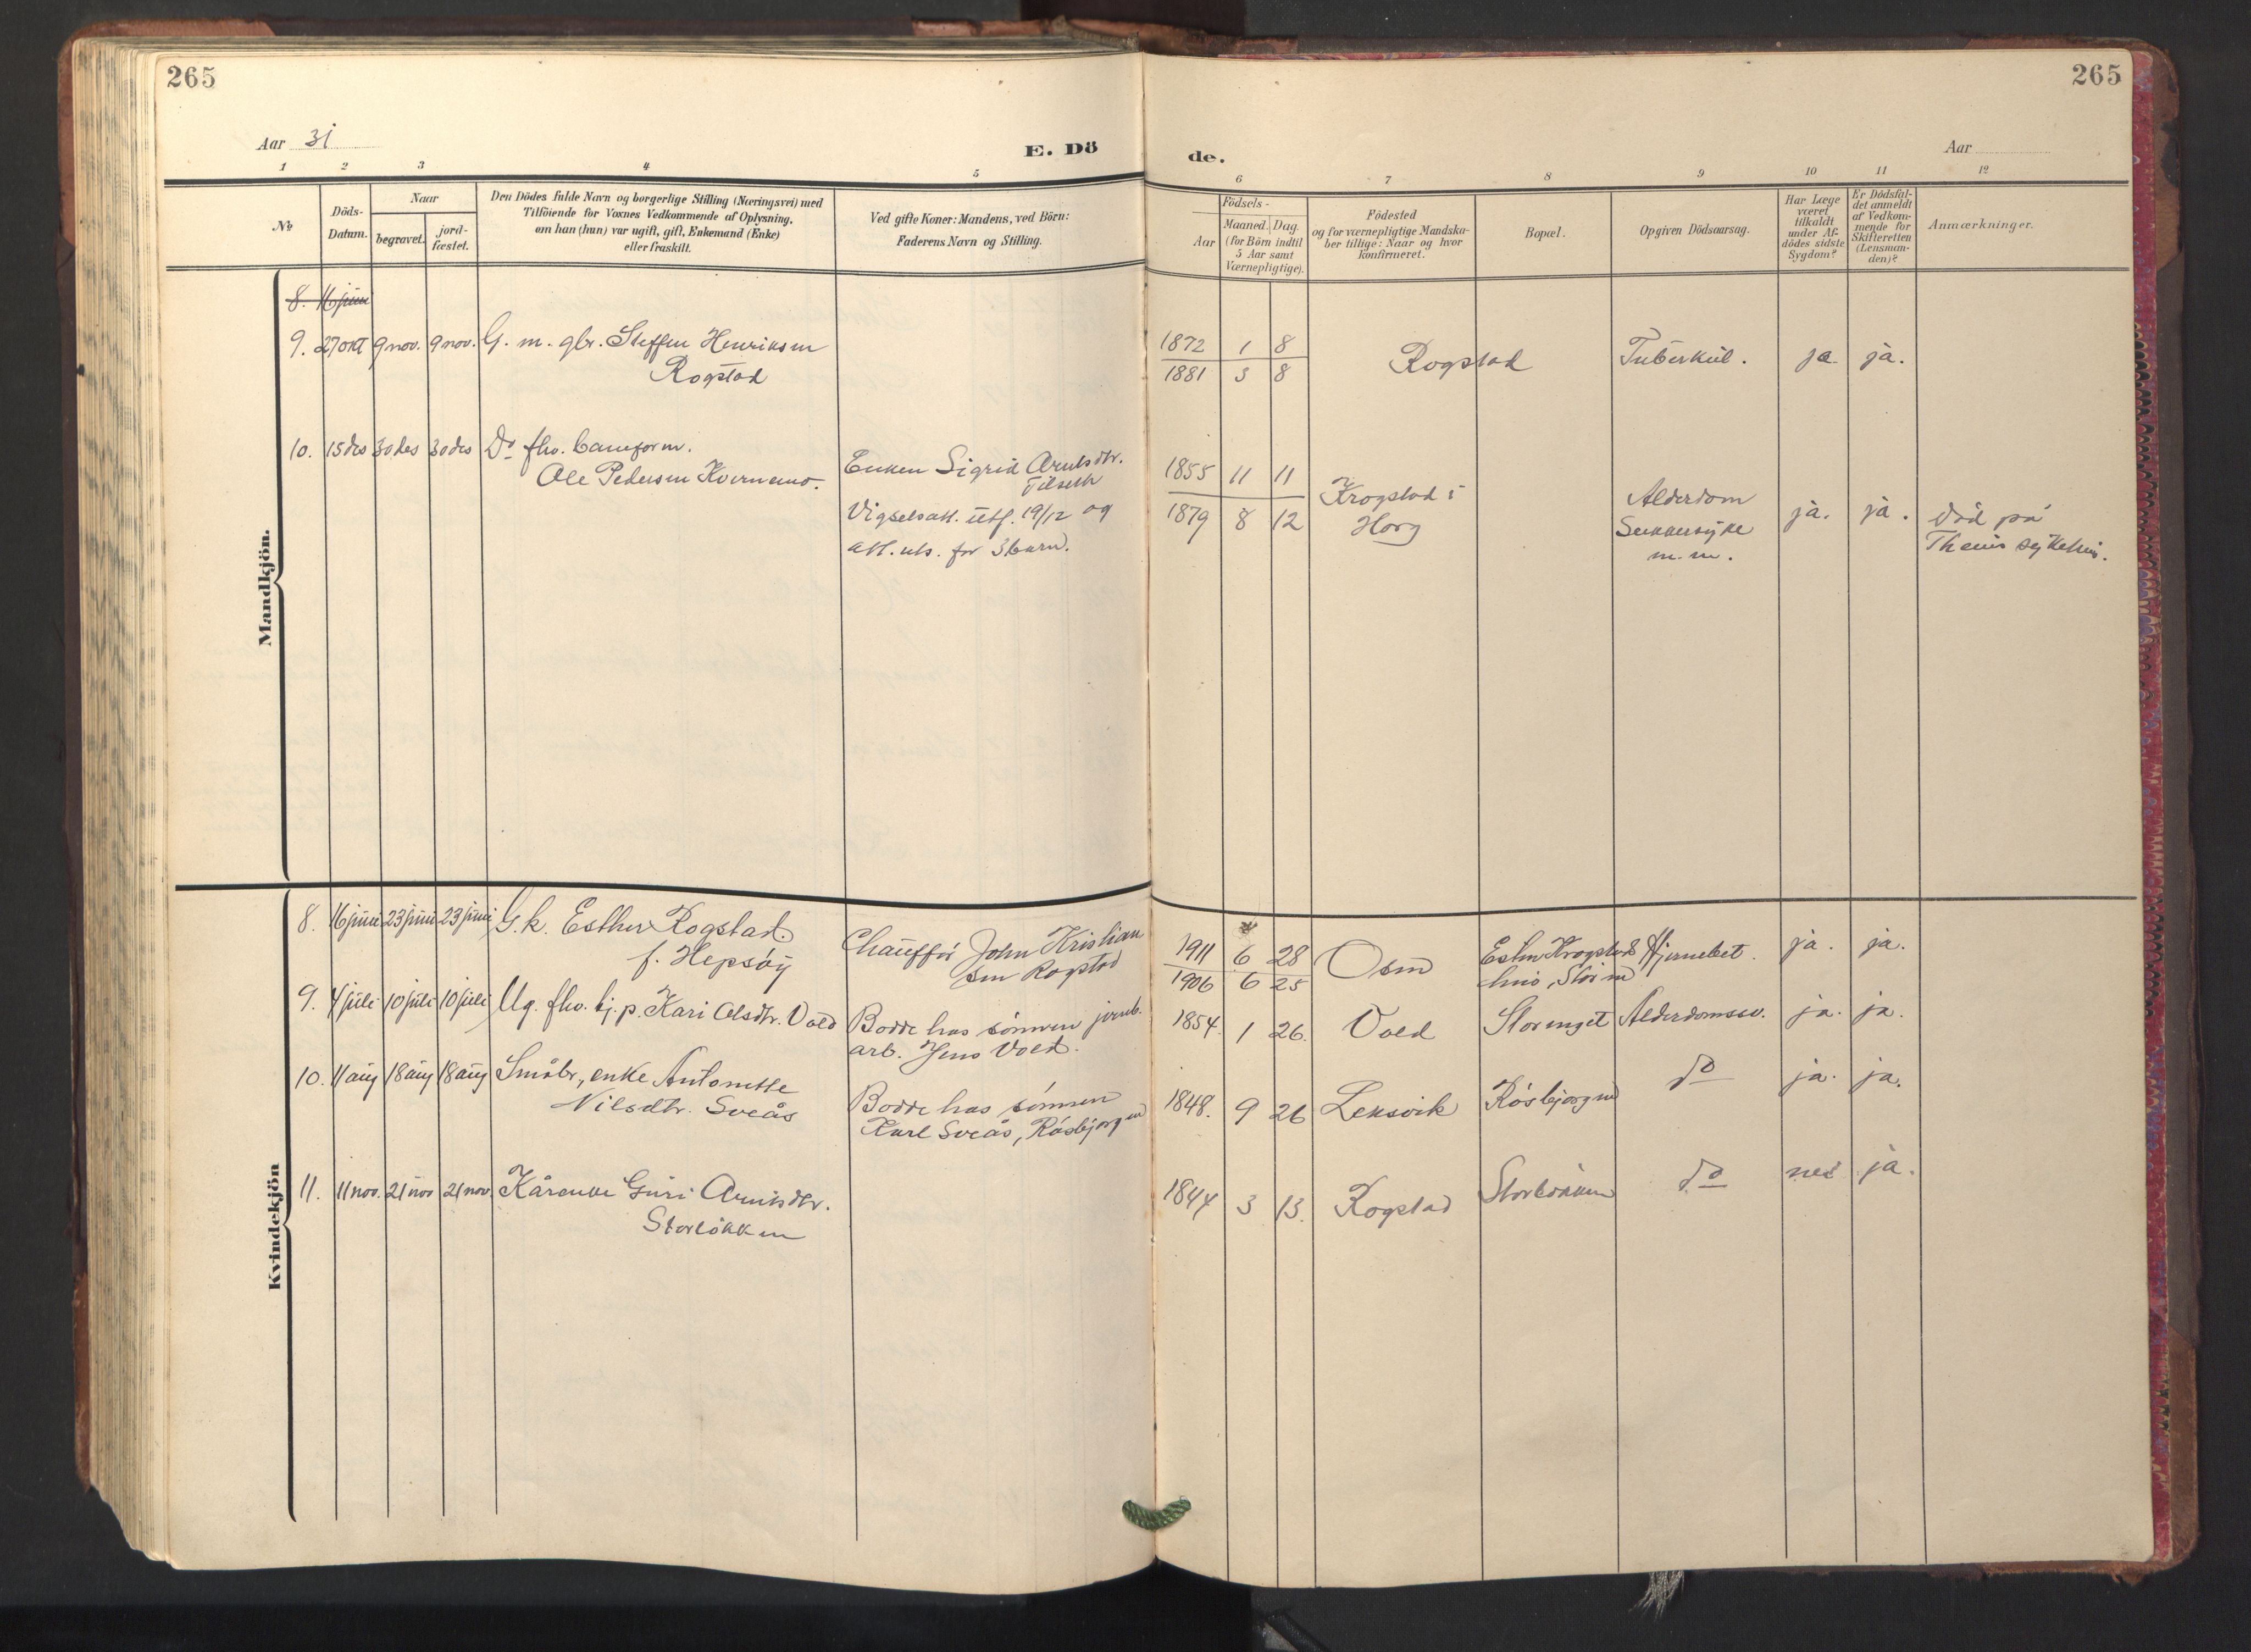 265
265
Aar 31
E. Dö
de.
Aar
1 2 3 4 5
6 7 8 9 10 11 12
No
Döds-
Datum.
Naar
begravet.
jord-
fæstet.
Den Dödes fulde Navn og borgerlige Stilling (Næringsvei) med
Tilföiende for Voxnes Vedkommende af Oplysning,
om han (hun) var ugift, gift, Enkemand (Enke)
eller fraskilt.
Ved gifte Koner: Mandens, ved Börn:
Faderens Navn og Stilling.
Födsels-
Aar
Maaned. Dag.
(for Börn indtil
5 Aar samt
Værnepligtige).
Födested
og for værnepligtige Mandska-
ber tillige: Naar og hvor
konfirmeret.
Bopæl.
Opgiven Dödsaarsag.
Har Læge
været
tilkaldt
under Af-
dödes sidste
Sygdom?
Er Dödsfal-
det anmeldt
af Vedkom-
mende for
Skifteretten
(Lensman-
den)?
Anmærkninger.
Mandkjön.
8. 16 juni
9. 27 okt 9 nov. 9 nov. G. m. gbr. Steffen Henriksen
Rogstad
1872 1 8
1881 3 8
Rogstad
Tuberkul. ja ja.
10. 15 des 30 des 30 des Do fhv. baneform.
Ole Pedersen Kvernmo.
Enken Sigrid Arntsdtr.
Tilseth
Vigselsatt. utf. 19/12 og
att. uts. for 3 barn.
1855 11 11
1879 8 12
Krogstad i
Horg
Alderdom
Sukkersyke
m. m.
ja. ja.
Död på
Theims sykehus.
Kvindekjön
8. 16 juni 23 juni 23 juni G. k. Esther Rogstad
f. Hepsöy
Chaufför John Kristian
sen Rogstad
1911 6 28
1906 6 25
Osen
Hjernebet. ja. ja.
9. 4 juli 10 juli 10 juli Ug. fhv. tj. p. Kari Olsdtr. Vold
Bodde hos sönnen jernb.
arb. Jens Vold.
1854. 1 26. Vold Storenget Alderdomssv. ja. ja.
10. 11 aug 18 aug 18 aug Småbr., enke Antonette
Nilsdtr. Sveås
Bodde hos sönnen
Karl Sveås, Rösbjorgen
1848. 9 26 Leksvik Rösbjorgen do ja. ja.
11. 11 nov. 21 nov 21 nov. Kårenke Guri Arntsdtr.
Storlökken
1844 3 13. Rogstad Storlökken do nei ja.